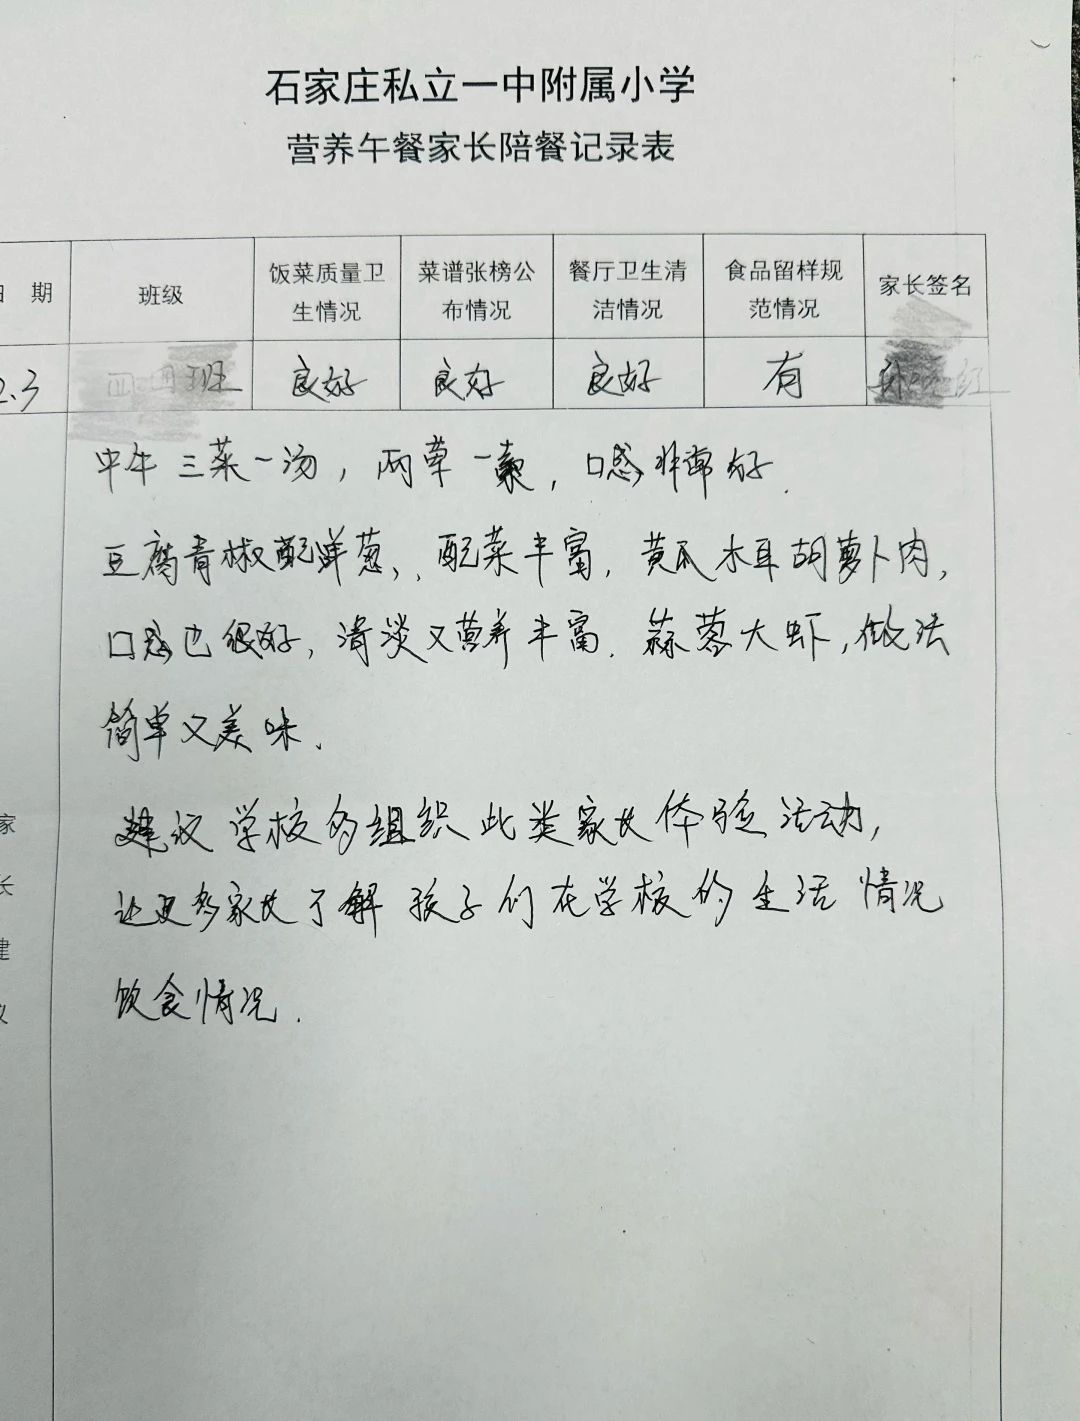 石家庄私立一中附属小学
营养午餐家长陪餐记录表
日 期 班级 饭菜质量卫生情况 菜谱张榜公布情况 餐厅卫生清洁情况 食品留样规范情况 家长签名
2.3 班 良好 良好 良好 有
中午三菜一汤，两荤一素，口感非常好.
豆腐青椒配洋葱,，配菜丰富，黄瓜木耳胡萝卜肉，
口感也很好，清淡又营养丰富. 蒜蓉大虾，做法
简单又美味.
建议学校多组织此类家长体验活动，
让更多家长了解孩子们在学校的生活情况
饮食情况.
家
长
建
议